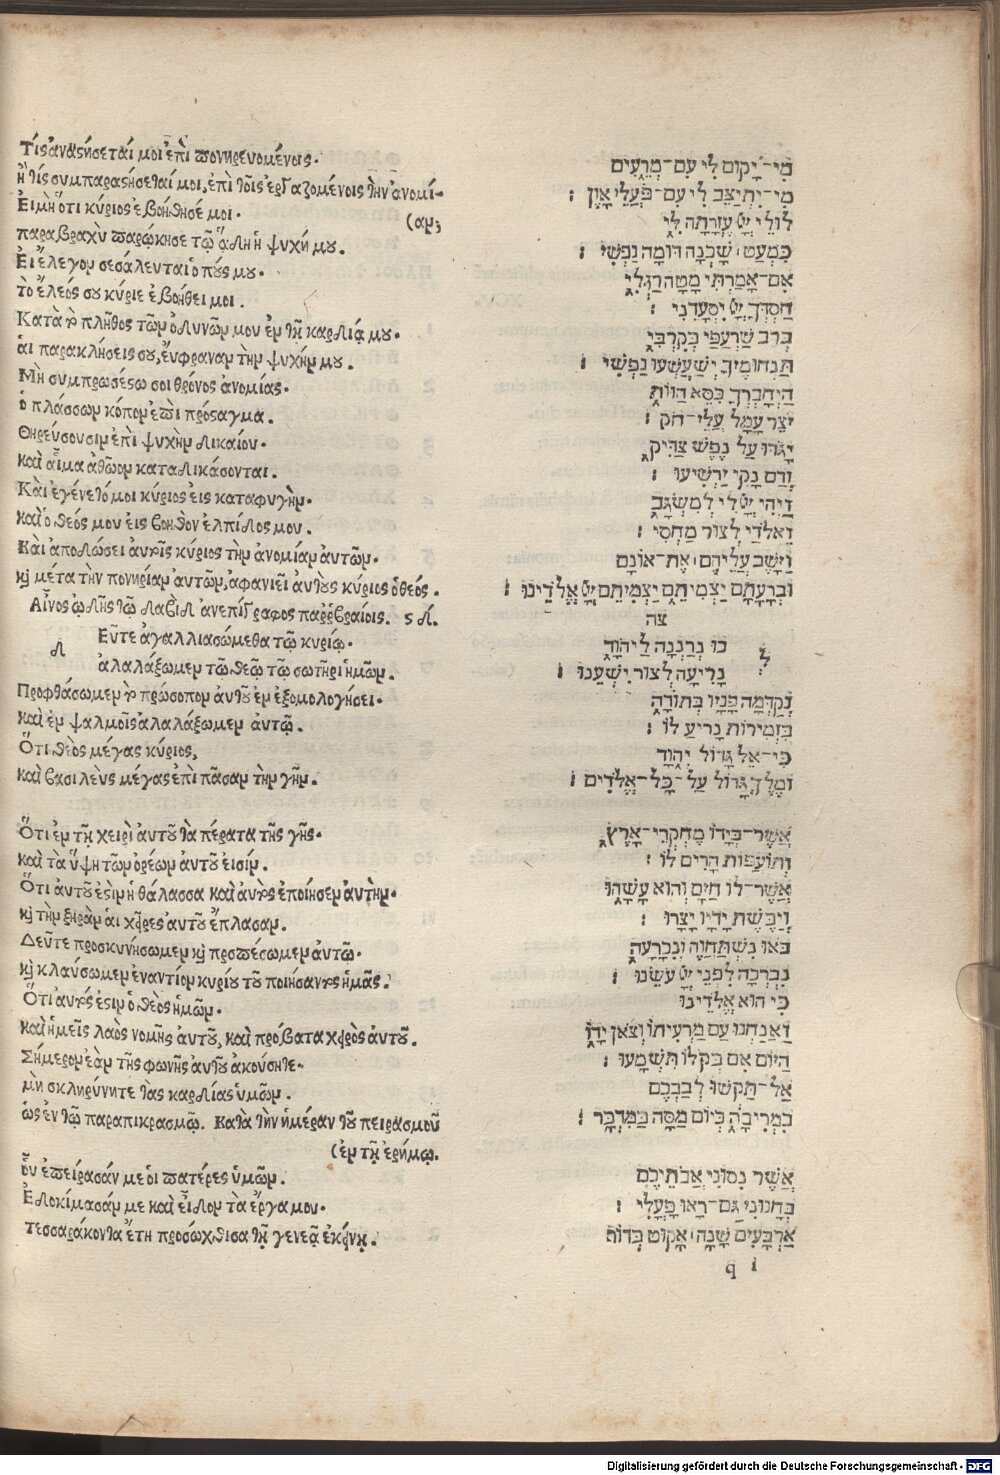 Τίς ἀναστήσεταί μοι ἐπὶ πονηρευομένοις.
ἢ τίς συμπαραστήσεταί μοι, ἐπὶ τοῖς ἐργαζομένοις τὴν ἀνομί-
(αν;
Εἰ μὴ ὅτι κύριος ἐβοήθησέ μοι.
παραβραχὺ παρώκησε τῷ ἅδη ἡ ψυχή μου.
Εἰ ἔλεγον σεσάλευται ὁ πούς μου.
τὸ ἔλεός σου κύριε ἐβοήθει μοι.
Κατὰ τὸ πλῆθος τῶν ὀδυνῶν μου ἐν τῇ καρδίᾳ μου.
αἱ παρακλήσεις σου, εὔφραναν τὴν ψυχήν μου.
Μὴ συμπροσέστω σοι θρόνος ἀνομίας.
ὁ πλάσσων κόπον ἐπὶ πρόσταγμα.
Θηρεύσουσιν ἐπὶ ψυχὴν δικαίου.
καὶ αἷμα ἀθῶον καταδικάσονται.
Καὶ ἐγένετό μοι κύριος εἰς καταφυγήν.
καὶ ὁ θεός μου εἰς βοηθὸν ἐλπίδος μου.
Καὶ ἀποδώσει αὐτοῖς κύριος τὴν ἀνομίαν αὐτῶν.
καὶ μετὰ τὴν πονηρίαν αὐτῶν, ἀφανιεῖ αὐτοὺς κύριος ὁ θεός.
Αἶνος ᾠδῆς τῷ δαβὶδ ἀνεπίγραφος παρ' ἑβραίοις. ϛ δ.
δ
Εῦτε ἀγαλλιασώμεθα τῷ κυρίῳ.
ἀλαλάξωμεν τῷ θεῷ τῷ σωτῆρι ἡμῶν.
Προφθάσωμεν τὸ πρόσωπον αὐτοῦ ἐν ἐξομολογήσει.
καὶ ἐν ψαλμοῖς ἀλαλάξωμεν αὐτῷ.
Ὅτι θεὸς μέγας κύριος,
καὶ βασιλεὺς μέγας ἐπὶ πᾶσαν τὴν γῆν.
Ὅτι ἐν τῇ χειρὶ αὐτοῦ τὰ πέρατα τῆς γῆς.
καὶ τὰ ὕψη τῶν ὀρέων αὐτοῦ εἰσίν.
Ὅτι αὐτοῦ ἐστὶν ἡ θάλασσα καὶ αὐτὸς ἐποίησεν αὐτήν.
καὶ τὴν ξηρὰν αἱ χεῖρες αὐτοῦ ἔπλασαν.
Δεῦτε προσκυνήσωμεν καὶ προσπέσωμεν αὐτῷ.
καὶ κλαύσωμεν ἐναντίον κυρίου τοῦ ποιήσαντος ἡμᾶς.
Ὅτι αὐτός ἐστιν ὁ θεὸς ἡμῶν.
καὶ ἡμεῖς λαὸς νομῆς αὐτοῦ, καὶ πρόβατα χειρὸς αὐτοῦ.
Σήμερον ἐὰν τῆς φωνῆς αὐτοῦ ἀκούσητε.
μὴ σκληρύνητε τὰς καρδίας ὑμῶν.
ὡς ἐν τῷ παραπικρασμῷ. Κατὰ τὴν ἡμέραν τοῦ πειρασμοῦ
(ἐν τῇ ἐρήμῳ.
οὗ ἐπείρασάν με οἱ πατέρες ὑμῶν.
Ἐδοκίμασάν με καὶ εἶδον τὰ ἔργα μου.
τεσσαράκοντα ἔτη προσώχθισα τῇ γενεᾷ ἐκείνῃ.
מִי־יָקוּם לִי עִם־מְרֵעִים
מִי־יִתְיַצֵּב לִי עִם־פֹּעֲלֵי אָוֶן :
לוּלֵי יְיָ עֶזְרָתָה לִּי
כִּמְעַט שָׁכְנָה דוּמָה נַפְשִׁי :
אִם־אָמַרְתִּי מָטָה רַגְלִי
חַסְדְּךָ יְיָ יִסְעָדֵנִי :
בְּרֹב שַׂרְעַפַּי בְּקִרְבִּי
תַּנְחוּמֶיךָ יְשַׁעַשְׁעוּ נַפְשִׁי :
הַיְחָבְרְךָ כִּסֵּא הַוּוֹת
יֹצֵר עָמָל עֲלֵי־חֹק :
יָגוֹדּוּ עַל נֶפֶשׁ צַדִּיק
וְדָם נָקִי יַרְשִׁיעוּ :
וַיְהִי יְיָ לִי לְמִשְׂגָּב
וֵאלֹדַי לְצוּר מַחְסִי :
וַיָּשֶׁב עֲלֵיהֶם אֶת־אוֹנָם
וּבְרָעָתָם יַצְמִיתֵם יַצְמִיתֵם יְיָ אֱלֹדֵינוּ :
צה
ל
כוּ נְרַנְּנָה לַיהוָֹד
נָרִיעָה לְצוּר יִשְׁעֵנוּ :
נְקַדְּמָה פָנָיו בְּתוֹדָה
בִּזְמִירוֹת נָרִיעַ לוֹ :
כִּי־אֵל גָּדוֹל יְהוָֹד
וּמֶלֶךְ גָּדוֹל עַל־כָּל־אֱלֹדִים :
אֲשֶׁר־בְּיָדוֹ מֶחְקְרֵי־אָרֶץ
וְתוֹעֲפוֹת הָרִים לוֹ :
אֲשֶׁר־לוֹ הַיָּם וְהוּא עָשָׂהוּ
וְיַבֶּשֶׁת יָדָיו יָצָרוּ :
בֹּאוּ נִשְׁתַּחֲוֶה וְנִכְרָעָה
נִבְרְכָה לִפְנֵי יְיָ עֹשֵׂנוּ :
כִּי הוּא אֱלֹדֵינוּ
וַאֲנַחְנוּ עַם מַרְעִיתוֹ וְצֹאן יָדוֹ
הַיּוֹם אִם בְּקֹלוֹ תִשְׁמָעוּ :
אַל־תַּקְשׁוּ לְבַבְכֶם
כִּמְרִיבָה כְּיוֹם מַסָּה בַּמִּדְבָּר :
אֲשֶׁר נִסּוּנִי אֲבֹתֵיכֶם
בְּחָנוּנִי גַּם־רָאוּ פָעֳלִי :
אַרְבָּעִים שָׁנָה אָקוּט בְּדוֹר
q i
Digitalisierung gefördert durch die Deutsche Forschungsgemeinschaft - DFG